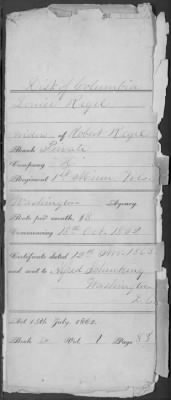 Dist of Columbia
Louise Regel
Widow of Robert Regel
Rank Private
Company
Regiment 1st Minn Vols
Washington Agency.
Rate per month, $8
Commencing 18th Oct. 1862
Certificate dated 12th Nov 1863
and sent to Alfred Schücking
Washington
D.C.
Act 14th July, 1862.
Book Vol. 1 Page